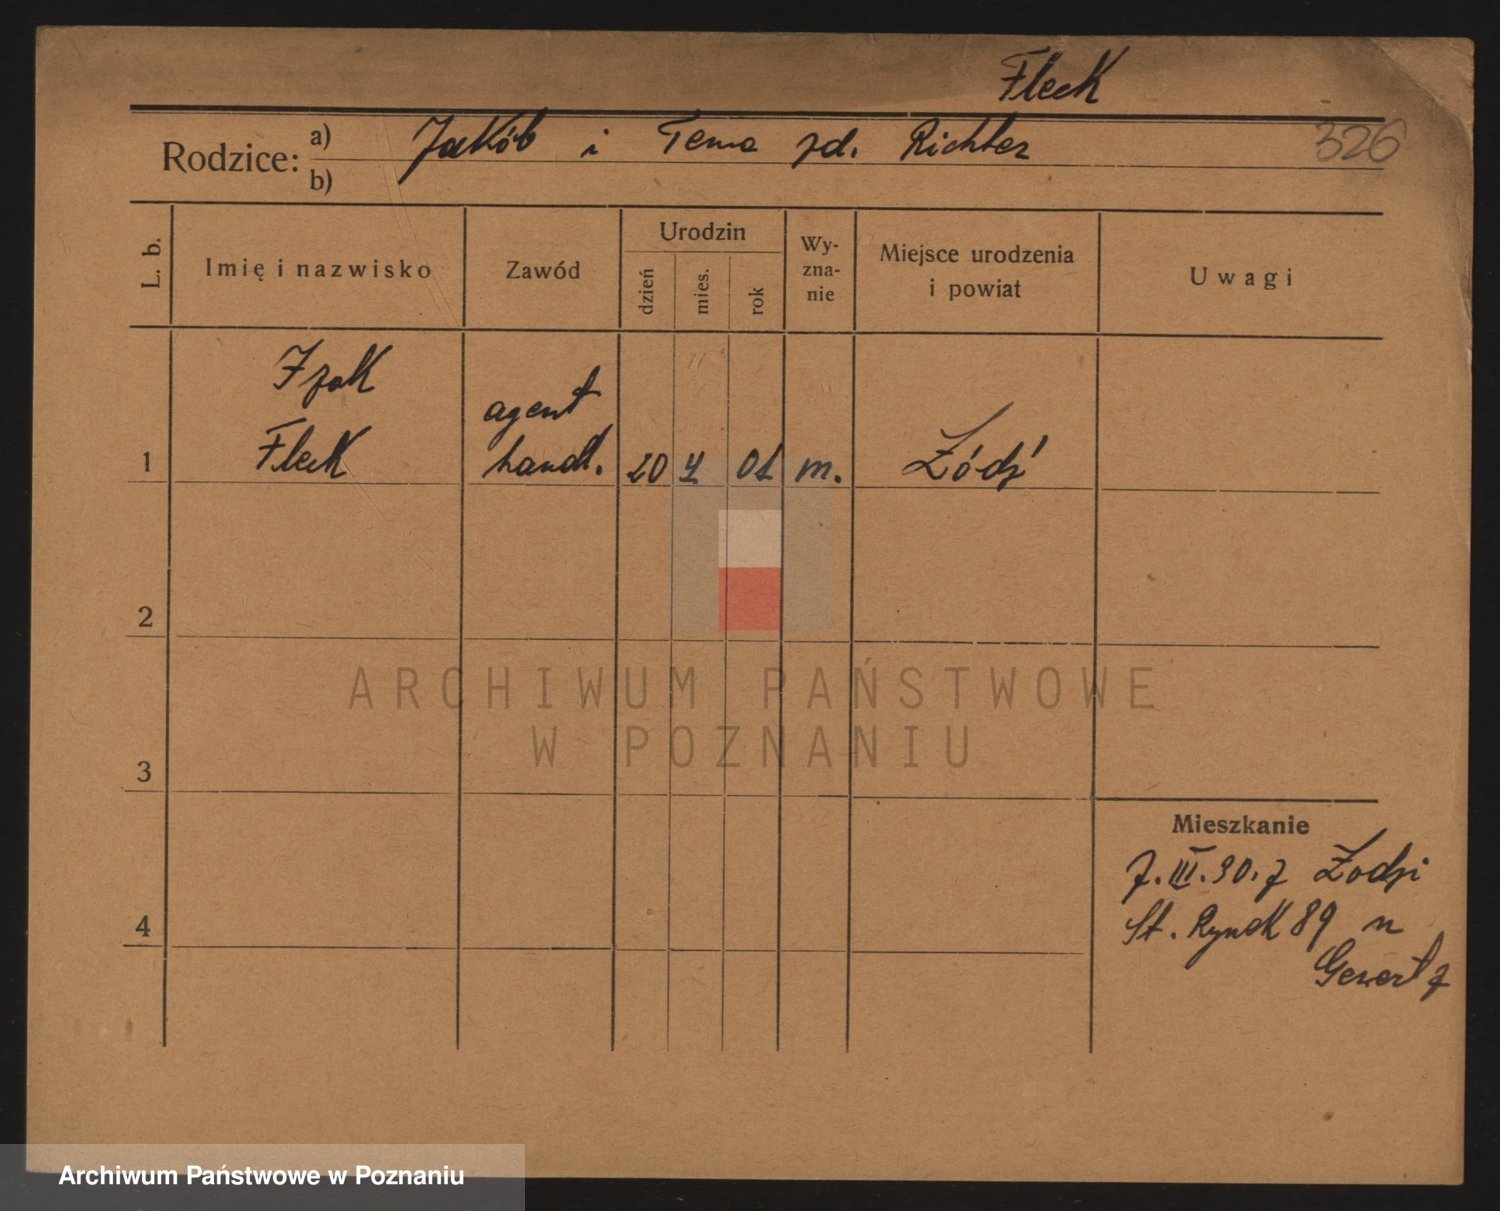 Fleck
Rodzice: a) Jakób i Tema zd. Richter
326
b)
L. b.
Imię i nazwisko
Zawód
Urodzin
dzień
mies.
rok
Wy-
zna-
nie
Miejsce urodzenia
i powiat
Uwagi
Izak
Fleck
agent
handl.
1
20
01
m.
Łódź
2
ARCHIWUM PAŃSTWOWE
W POZNANIU
3
Mieszkanie
7.III.30. z Łodzi
St. Rynek 89 u
4
Archiwum Państwowe w Poznaniu